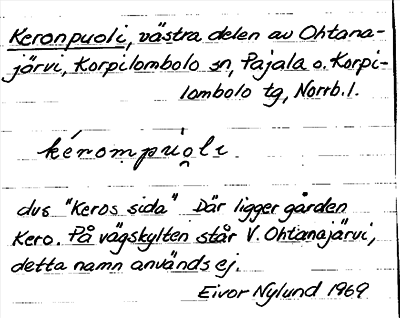 Keronpuoli, västra delen av Ohtana-
järvi, Korpilombolo sn, Pajala o. Korpi-
lombolo tg, Norrb. l.
kérompu̯oli.
dvs "Keros sida" Där ligger gården
Kero. På vägskylten står V. Ohtanajärvi,
detta namn används ej.
Eivor Nylund 1969